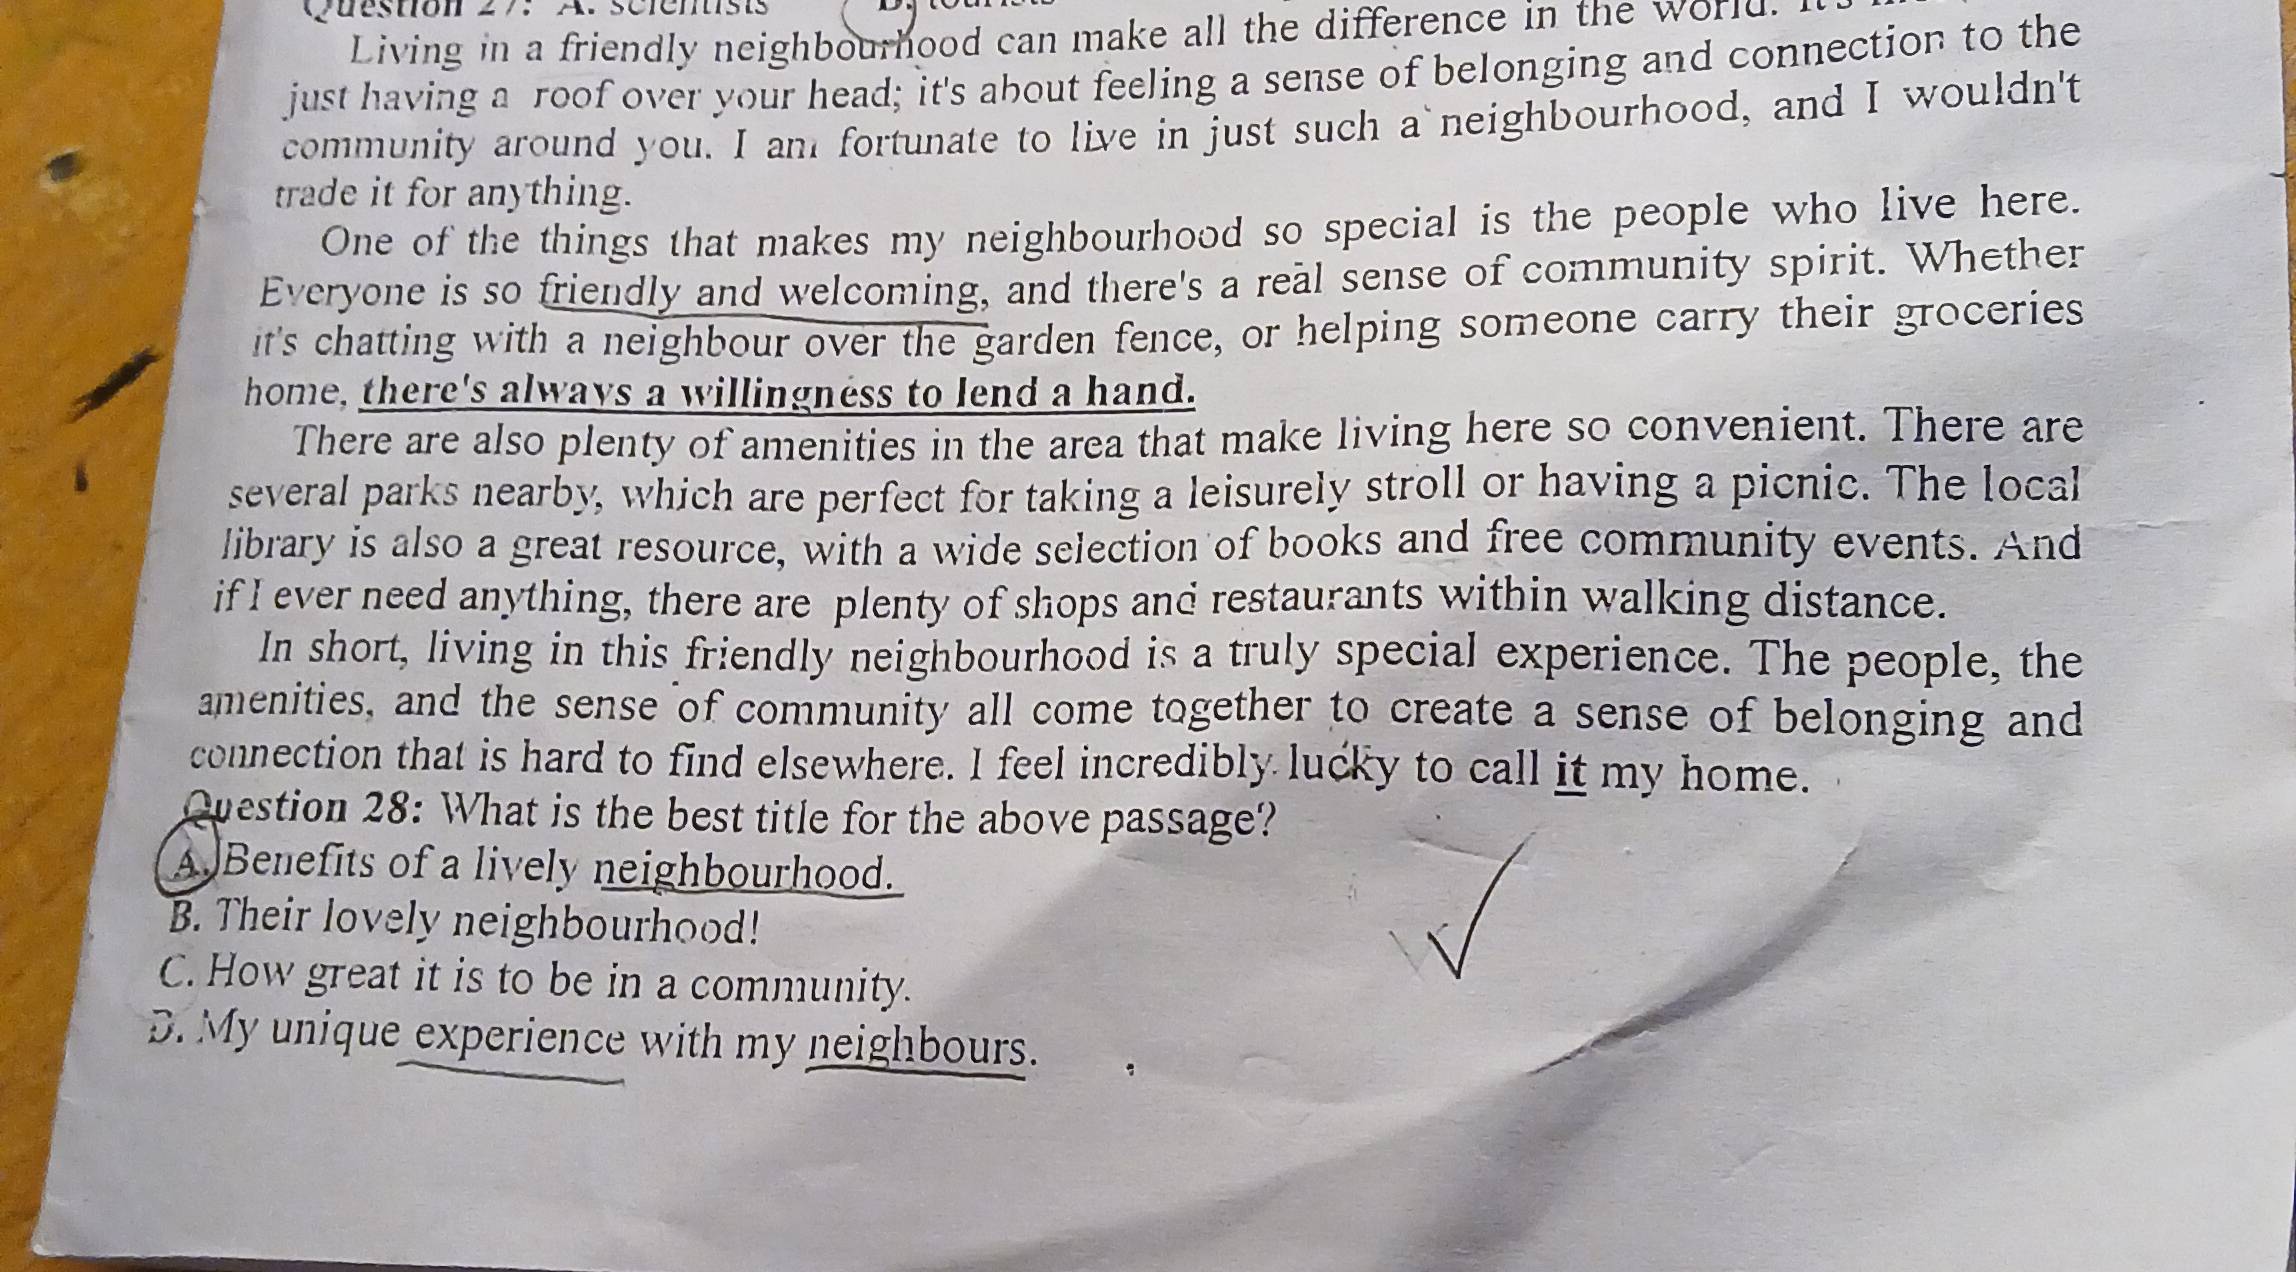 Question 27: A. scientists
Living in a friendly neighbourhood can make all the difference in the world. It's
just having a roof over your head; it's about feeling a sense of belonging and connection to the
community around you. I am fortunate to live in just such a neighbourhood, and I wouldn't
trade it for anything.
One of the things that makes my neighbourhood so special is the people who live here.
Everyone is so friendly and welcoming, and there's a real sense of community spirit. Whether
it's chatting with a neighbour over the garden fence, or helping someone carry their groceries
home, there's always a willingness to lend a hand.
There are also plenty of amenities in the area that make living here so convenient. There are
several parks nearby, which are perfect for taking a leisurely stroll or having a picnic. The local
library is also a great resource, with a wide selection of books and free community events. And
if I ever need anything, there are plenty of shops and restaurants within walking distance.
In short, living in this friendly neighbourhood is a truly special experience. The people, the
amenities, and the sense of community all come together to create a sense of belonging and
connection that is hard to find elsewhere. I feel incredibly lucky to call it my home.
Question 28: What is the best title for the above passage?
A. Benefits of a lively neighbourhood.
B. Their lovely neighbourhood!
C. How great it is to be in a community.
D. My unique experience with my neighbours.